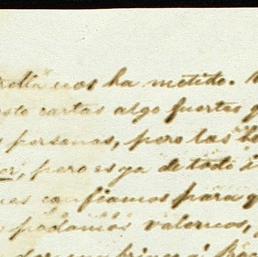 rella nos ha metido.
esto cartas algo fuertes
personas, pero las
or, pero es ya de todo
confiamos para q
podamos valernos,